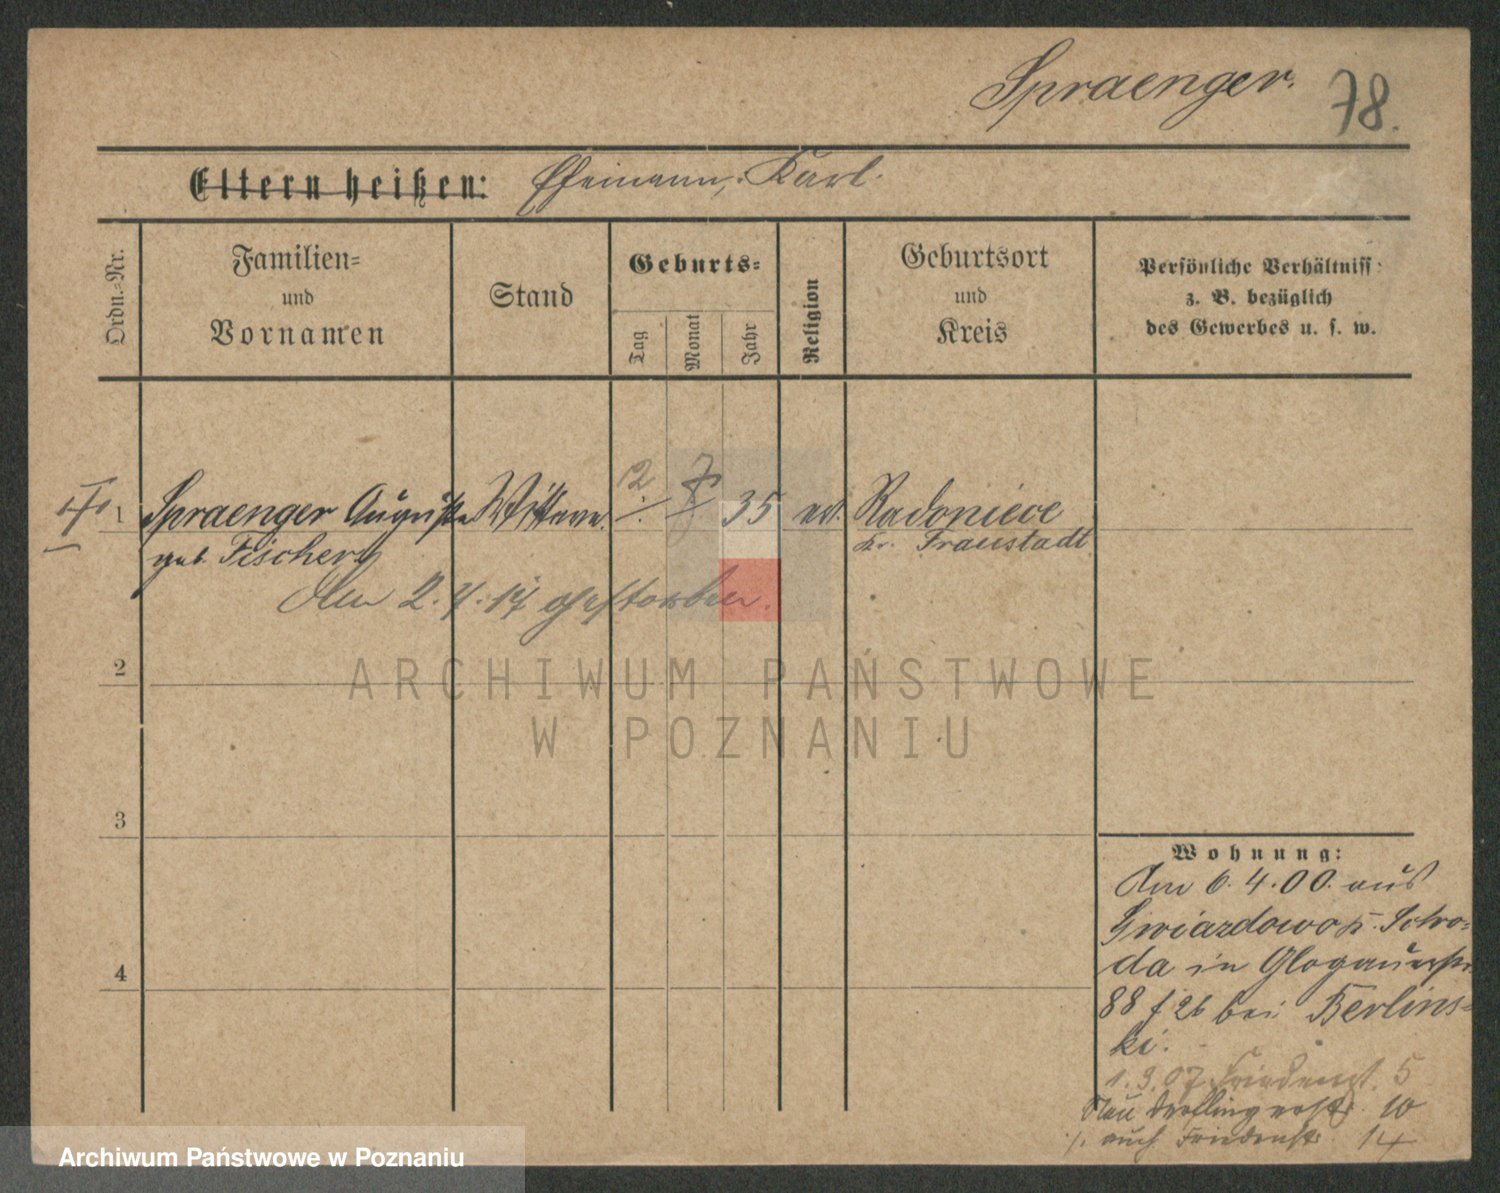 Spraenger. 78.
Eltern heißen: Ehemann, Karl.
Ordn.-Nr.
Familien-
und
Vornamen
Stand
Geburts-
Tag
Monat
Jahr
Religion
Geburtsort
und
Kreis
Persönliche Verhältniss:
z. B. bezüglich
des Gewerbes u. s. w.
1 Spraenger Auguste Wittwe 12 7 35 ev. Radoniece
geb. Fischer Kr. Fraustadt
Am 2. 4. 17 gestorben.
2
3
4
Wohnung:
Am 6. 4. 00. aus
Gwiazdowo K. Schro-
da in Glogauerstr.
88 f 26 bei Berlins-
ki.
1. 9. 07 Friedenst. 5
Derflingerstr. 10
auch Friedenstr. 14
ARCHIWUM PAŃSTWOWE
W POZNANIU
Archiwum Państwowe w Poznaniu